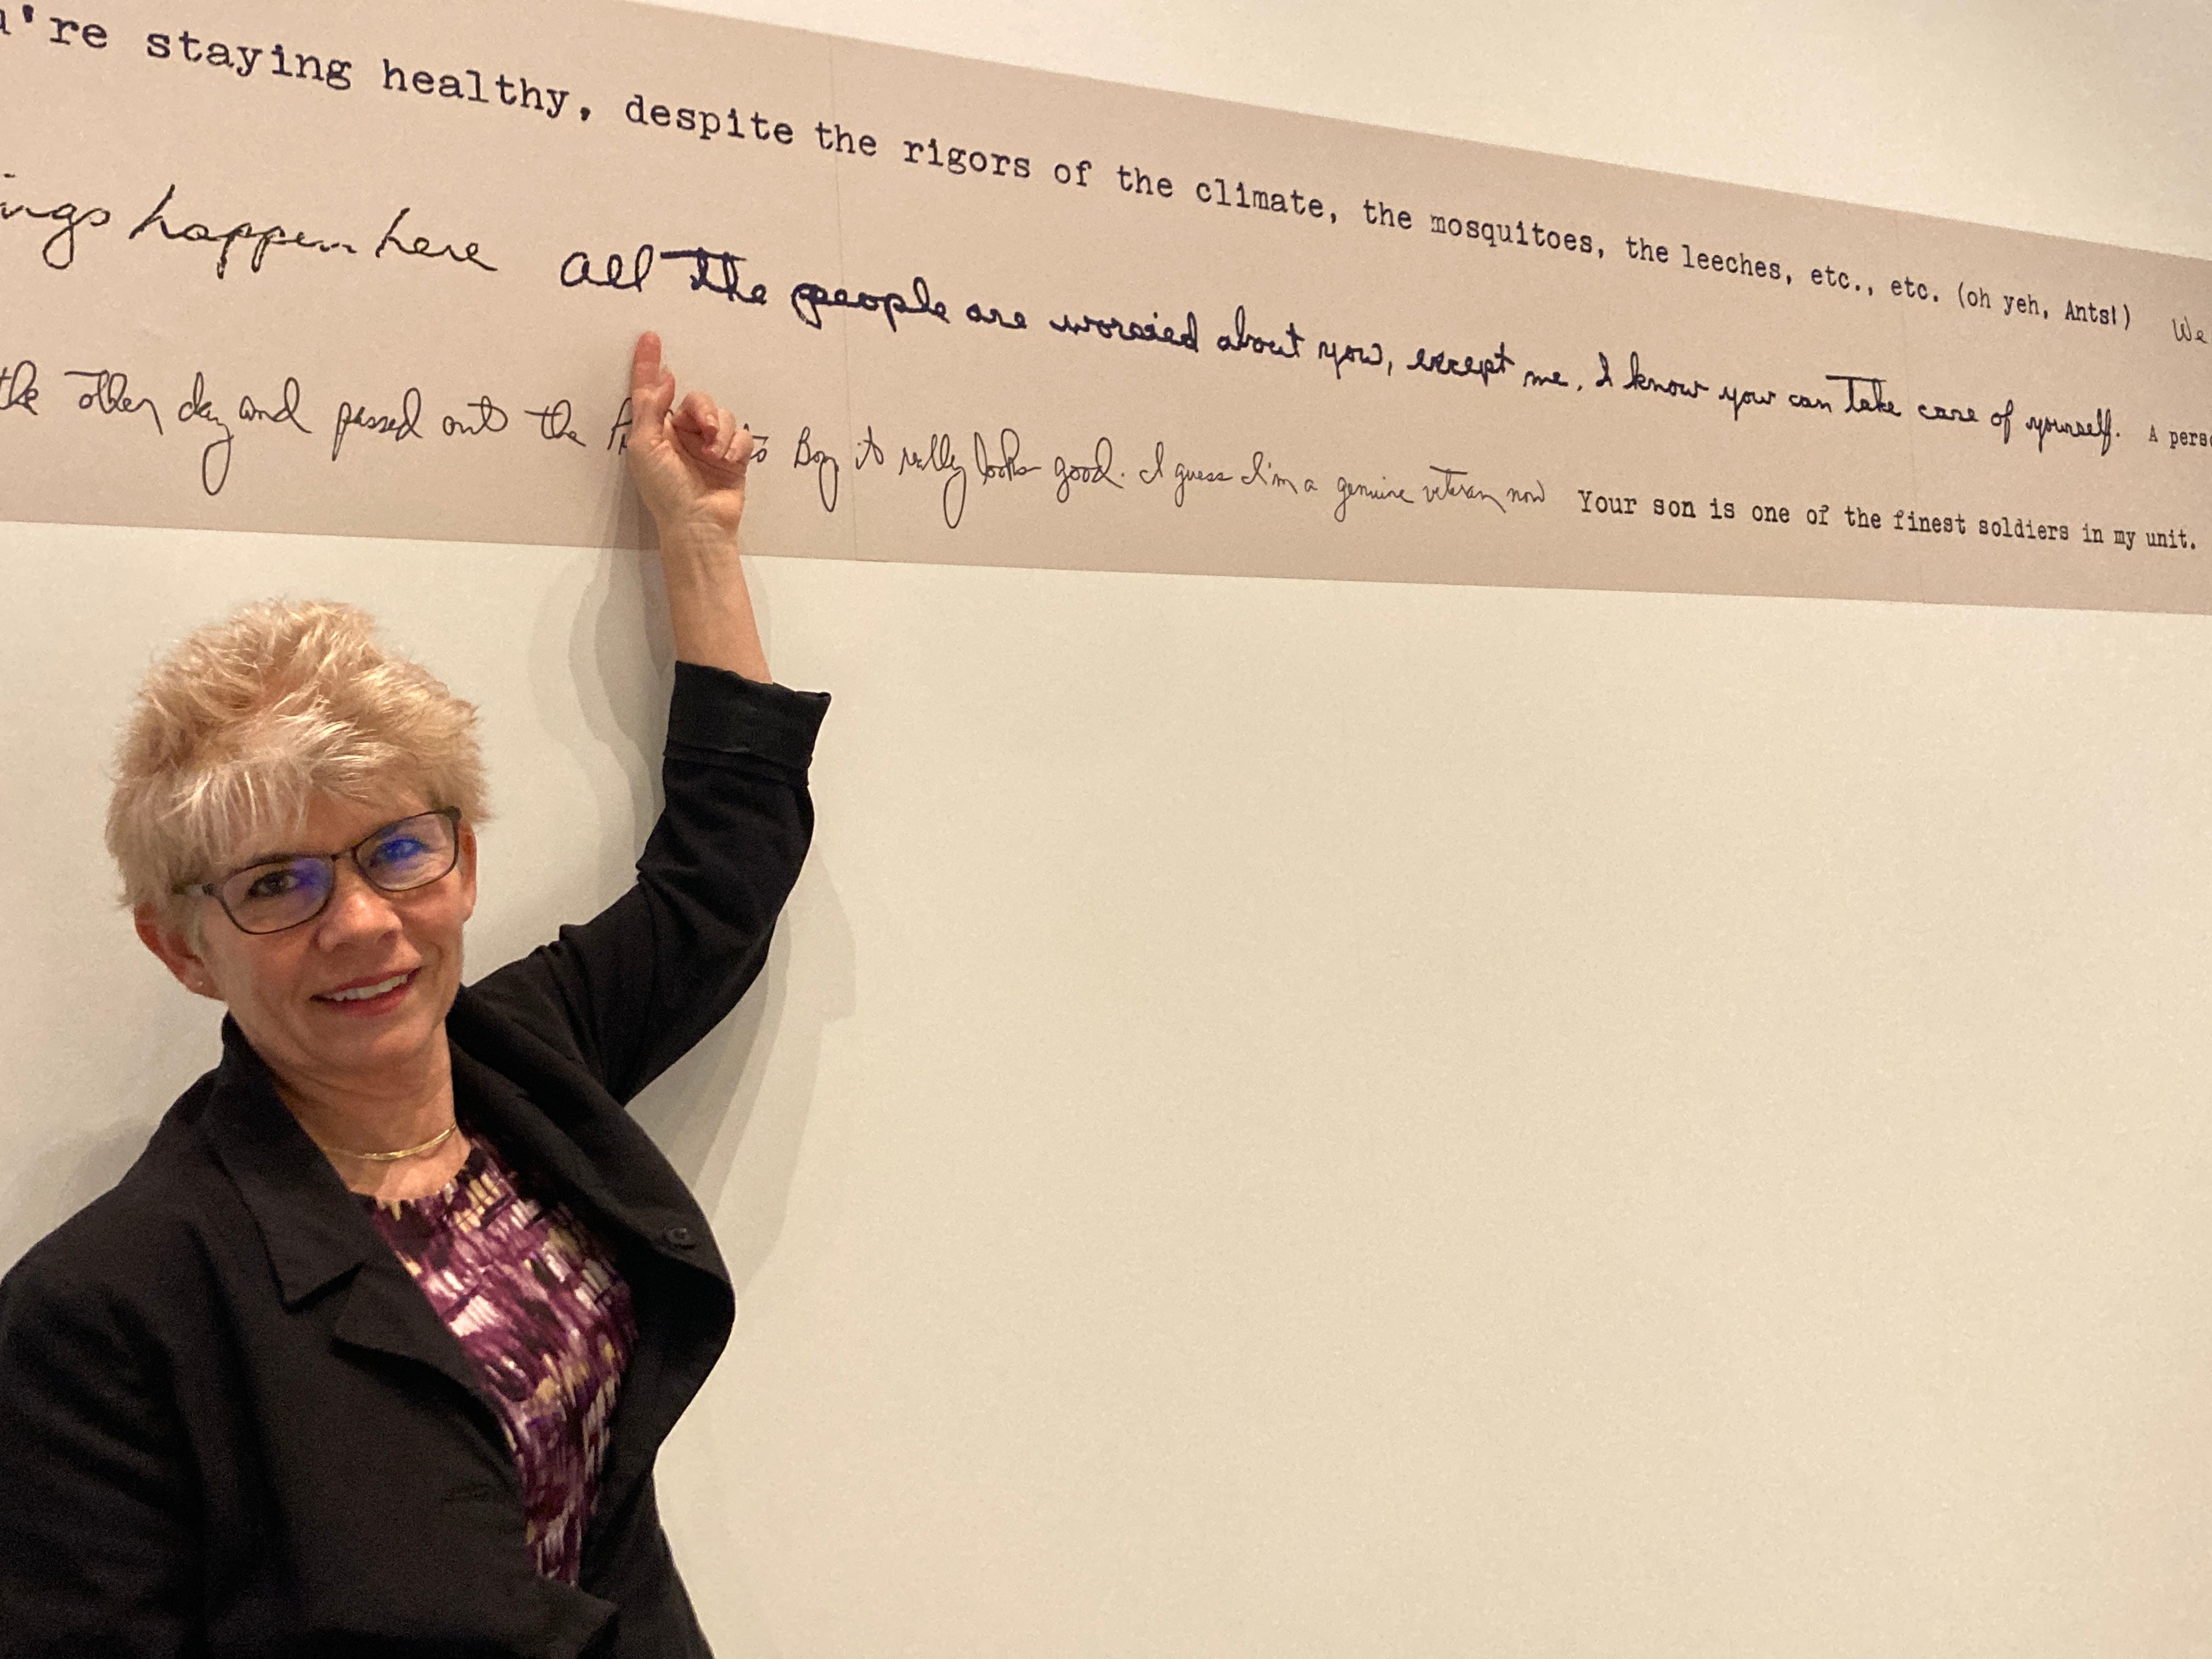 're staying healthy, despite the rigors of the climate, the mosquitoes, the leeches, etc., etc. (oh yeh, Ants!) We
ings happen here All the people are worried about you, except me, I know you can take care of yourself. A perso
the other day and passed out the to Boy it really looks good. I guess I'm a genuine veteran now Your son is one of the finest soldiers in my unit.